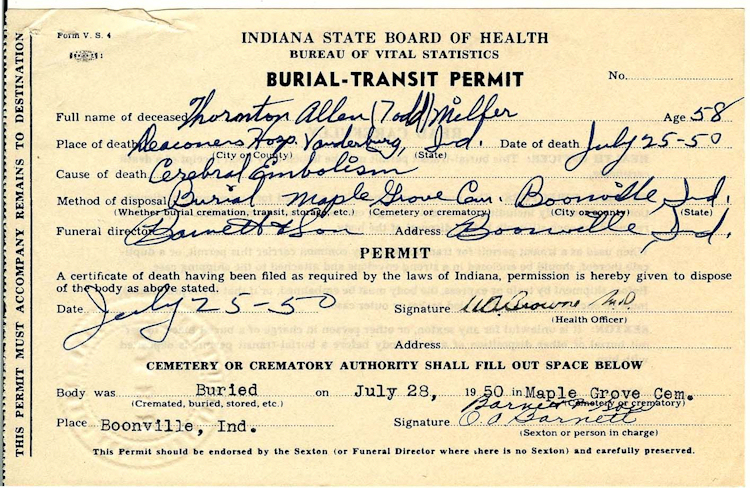 THIS PERMIT MUST ACCOMPANY REMAINS TO DESTINATION
Form V. S. 4
INDIANA STATE BOARD OF HEALTH
BUREAU OF VITAL STATISTICS
BURIAL-TRANSIT PERMIT
No.
Full name of deceased Thornton Allen (Todd) Milfer Age 58
Place of death Deaconess Hosp. Vanderburg, Ind. Date of death July 25-50
(City or County) (State)
Cause of death Cerebral Embolism
Method of disposal Burial Maple Grove Cem. Boonville Ind.
(Whether burial cremation, transit, storage, etc.) (Cemetery or crematory) (City or county) (State)
Funeral director Barnett & Son Address Boonville, Ind.
PERMIT
A certificate of death having been filed as required by the laws of Indiana, permission is hereby given to dispose
of the body as above stated.
Date July 25-50 Signature Browne M.D
(Health Officer)
Address
CEMETERY OR CREMATORY AUTHORITY SHALL FILL OUT SPACE BELOW
Body was Buried on July 28, 1950 in Maple Grove Cem.
(Cremated, buried, stored, etc.) (Cemetery or crematory)
Barnett & Son
Place Boonville, Ind. Signature O. A. Barnett
(Sexton or person in charge)
This Permit should be endorsed by the Sexton (or Funeral Director where there is no Sexton) and carefully preserved.